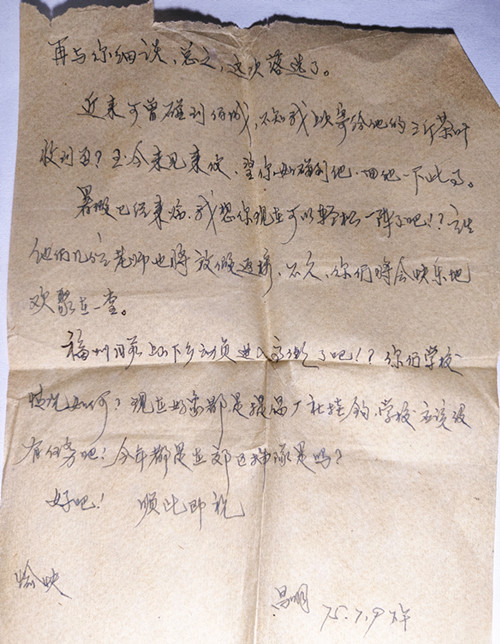 再与你细谈，总之，这次落选了。
近来可曾碰到佰城，不知我上次寄给他的三斤茶叶
收到否？至今未见来信，望你如碰到他，问他一下此事。
暑假已经来临，我想你现在可以轻松一阵了吧！？
他们几位老师也将放假返榕，不久，你们将会快乐地
欢聚在一堂。
福州目前上山下乡动员进入高潮了吧！？你们学校
情况如何？现在好象都是跟厂社挂钩，学校应该没
有任务吧！今年都是在郊区插队是吗？
好吧！ 顺此即祝
愉快
昌明 75.7.9